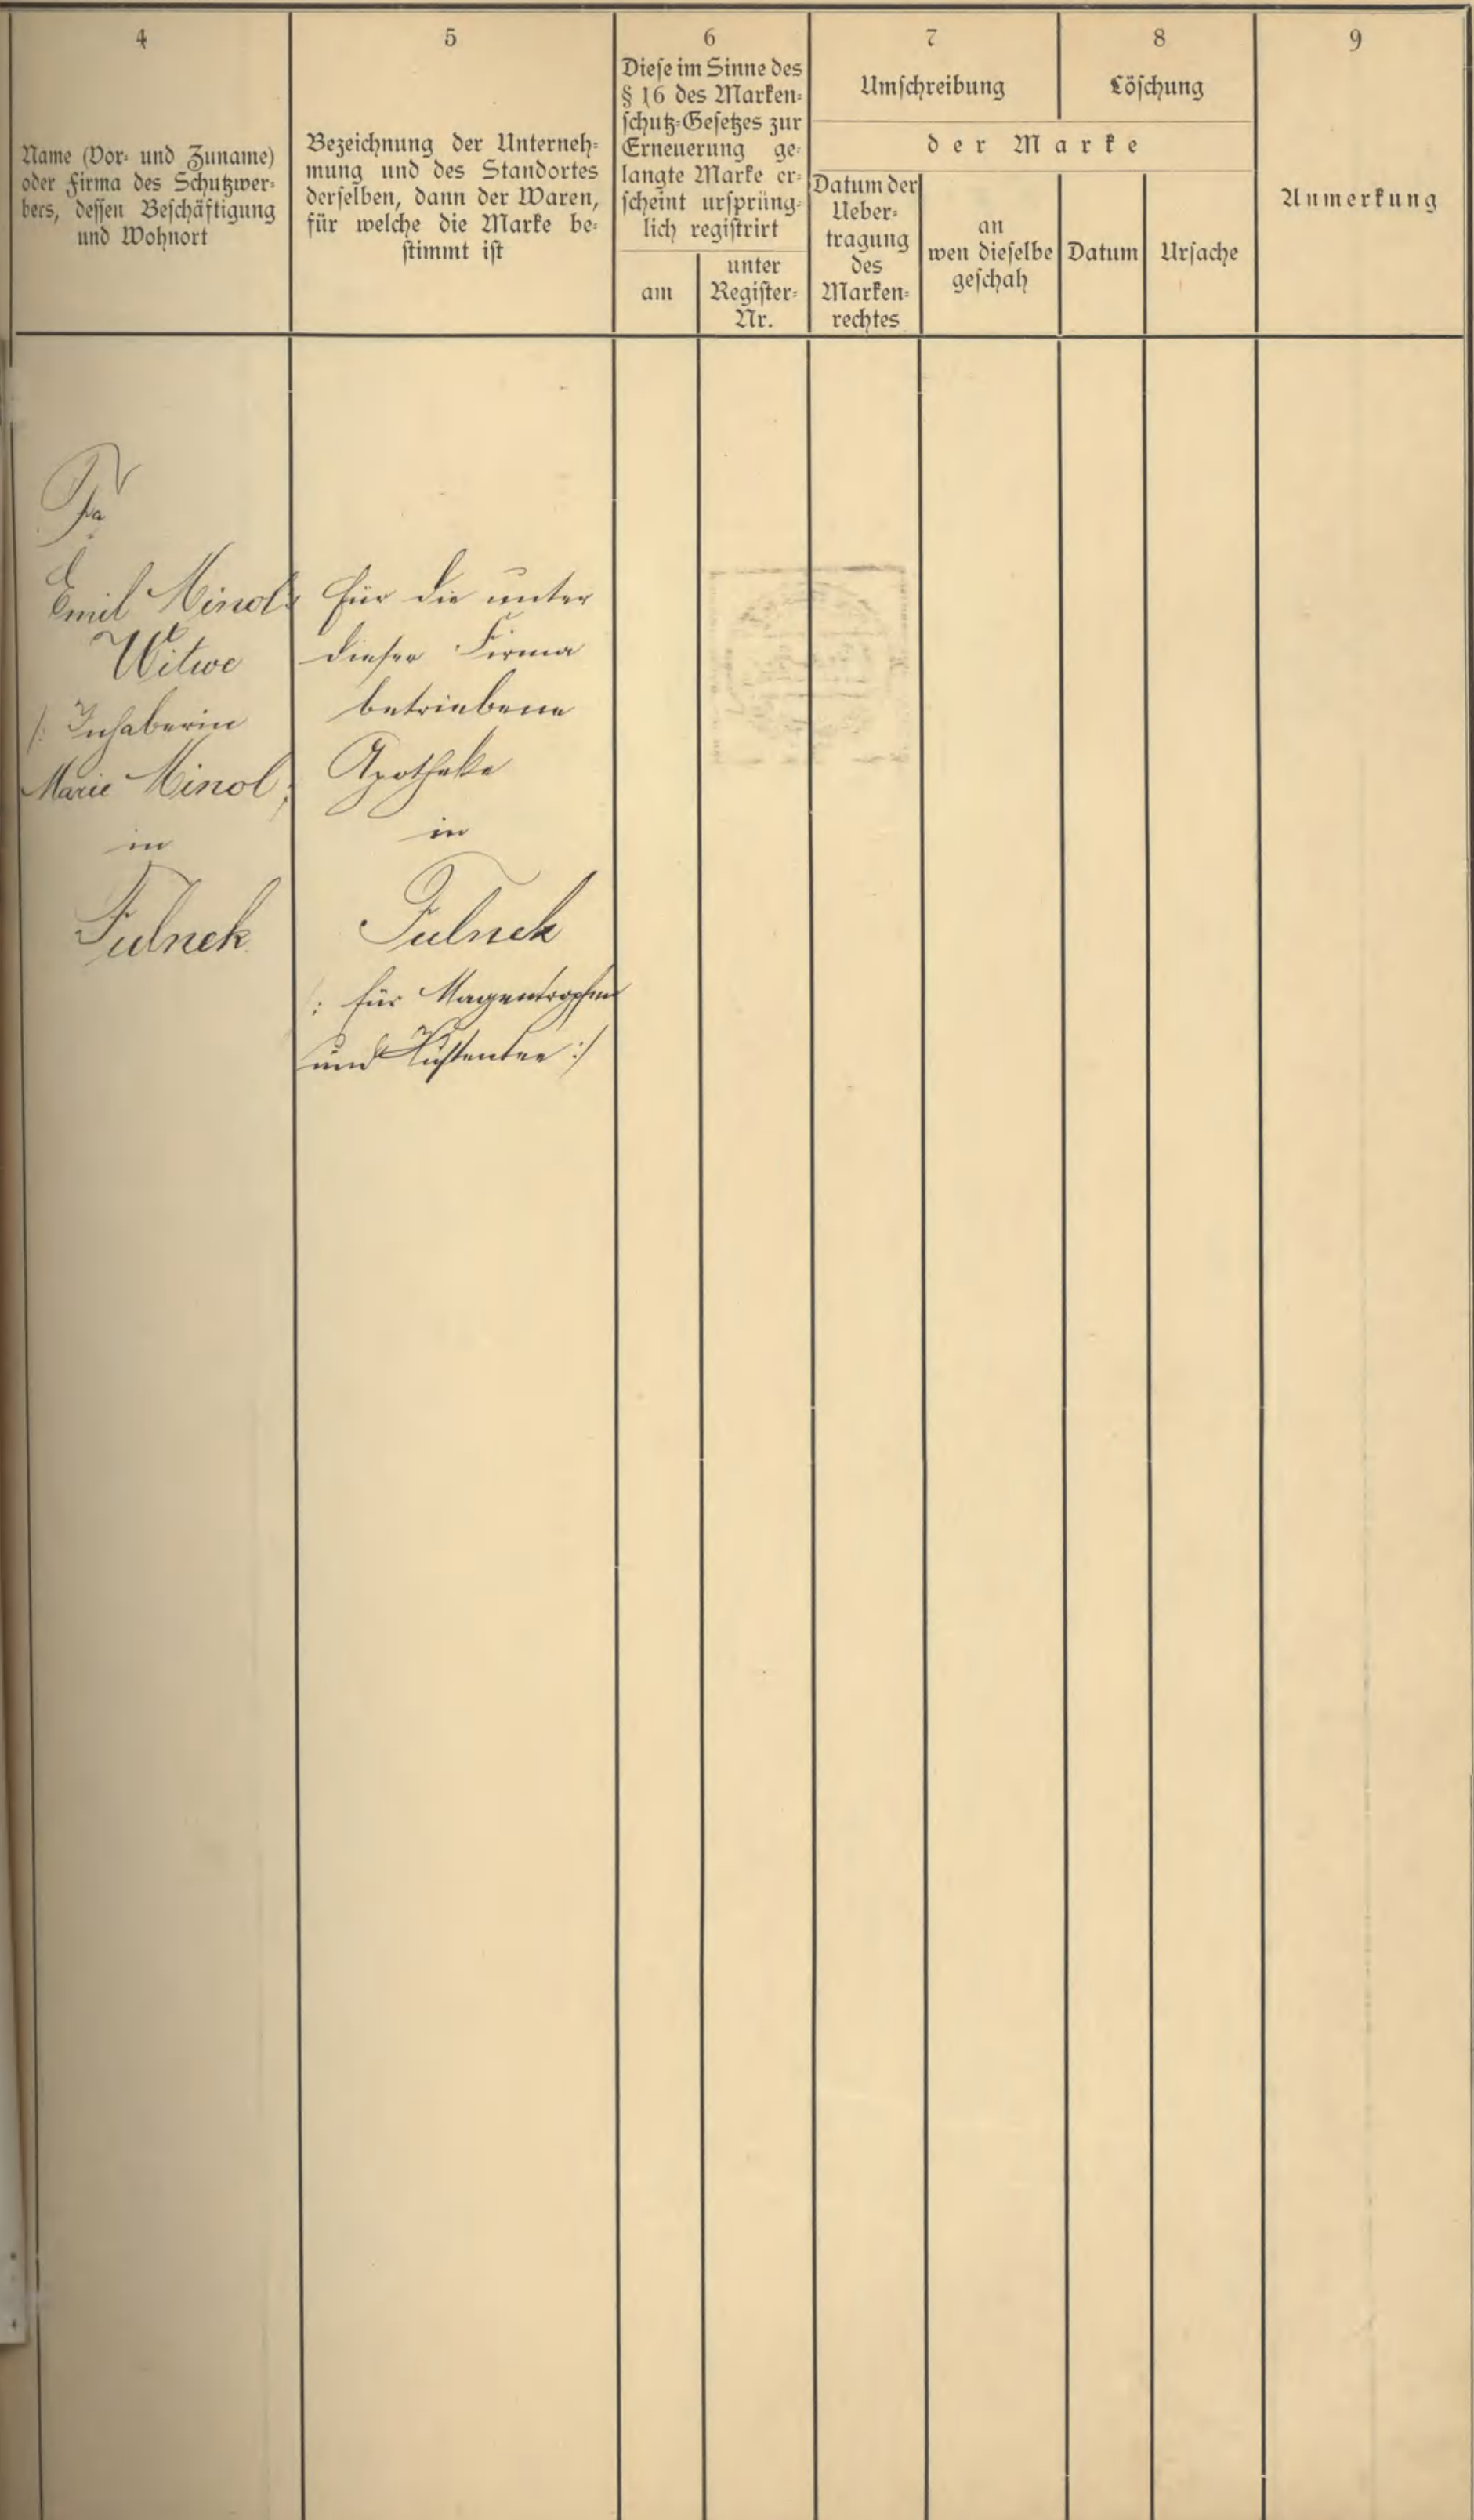 4
Name (Vor- und Zuname)
oder Firma des Schutzwer-
bers, dessen Beschäftigung
und Wohnort
5
Bezeichnung der Unterneh-
mung und des Standortes
derselben, dann der Waren,
für welche die Marke be-
stimmt ist
6
Diese im Sinne des
§ 16 des Marken-
schutz-Gesetzes zur
Erneuerung ge-
langte Marke er-
scheint ursprüng-
lich registrirt
am
unter
Register-
Nr.
7
Umschreibung
8
Löschung
der Marke
Datum der
Ueber-
tragung
des
Marken-
rechtes
an
wen dieselbe
geschah
Datum
Ursache
9
Anmerkung
Fa
Emil Minol's
Witwe
/: Inhaberin
Marie Minol
in
Fulnek
für die unter
dieser Firma
betriebene
Apotheke
in
Fulnek
: für Magentropfen
und Hustentee :/